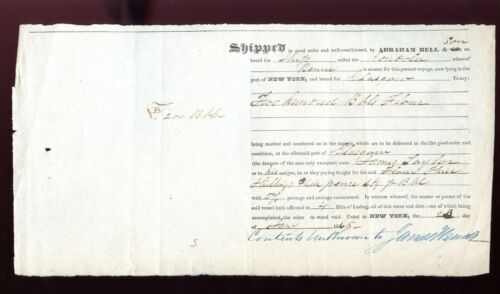 Son
Shipped in good order and well-conditioned, by ABRAHAM BELL & CO. on
board the Ship called the whereof
is master for this present voyage, now lying in the
port of NEW YORK, and bound for Glasgow To say:
Two hundred Bbls Flour
B
200 Bbls
being marked and numbered as in the margin, which are to be delivered in the like good order and
condition, at the aforesaid port of Glasgow
(the dangers of the seas only excepted) unto James Taylor
or to his assigns, he or they paying freight for the said Flour Three
Shillings pence Stg P Bbl
with 5% primage and average accustomed. In witness whereof, the master or purser of the
said vessel hath affirmed to 4 Bills of Lading, all of this tenor and date; one of which being
accomplished, the other to stand void. Dated in NEW YORK, the
day of 184
Contents Unknown to James